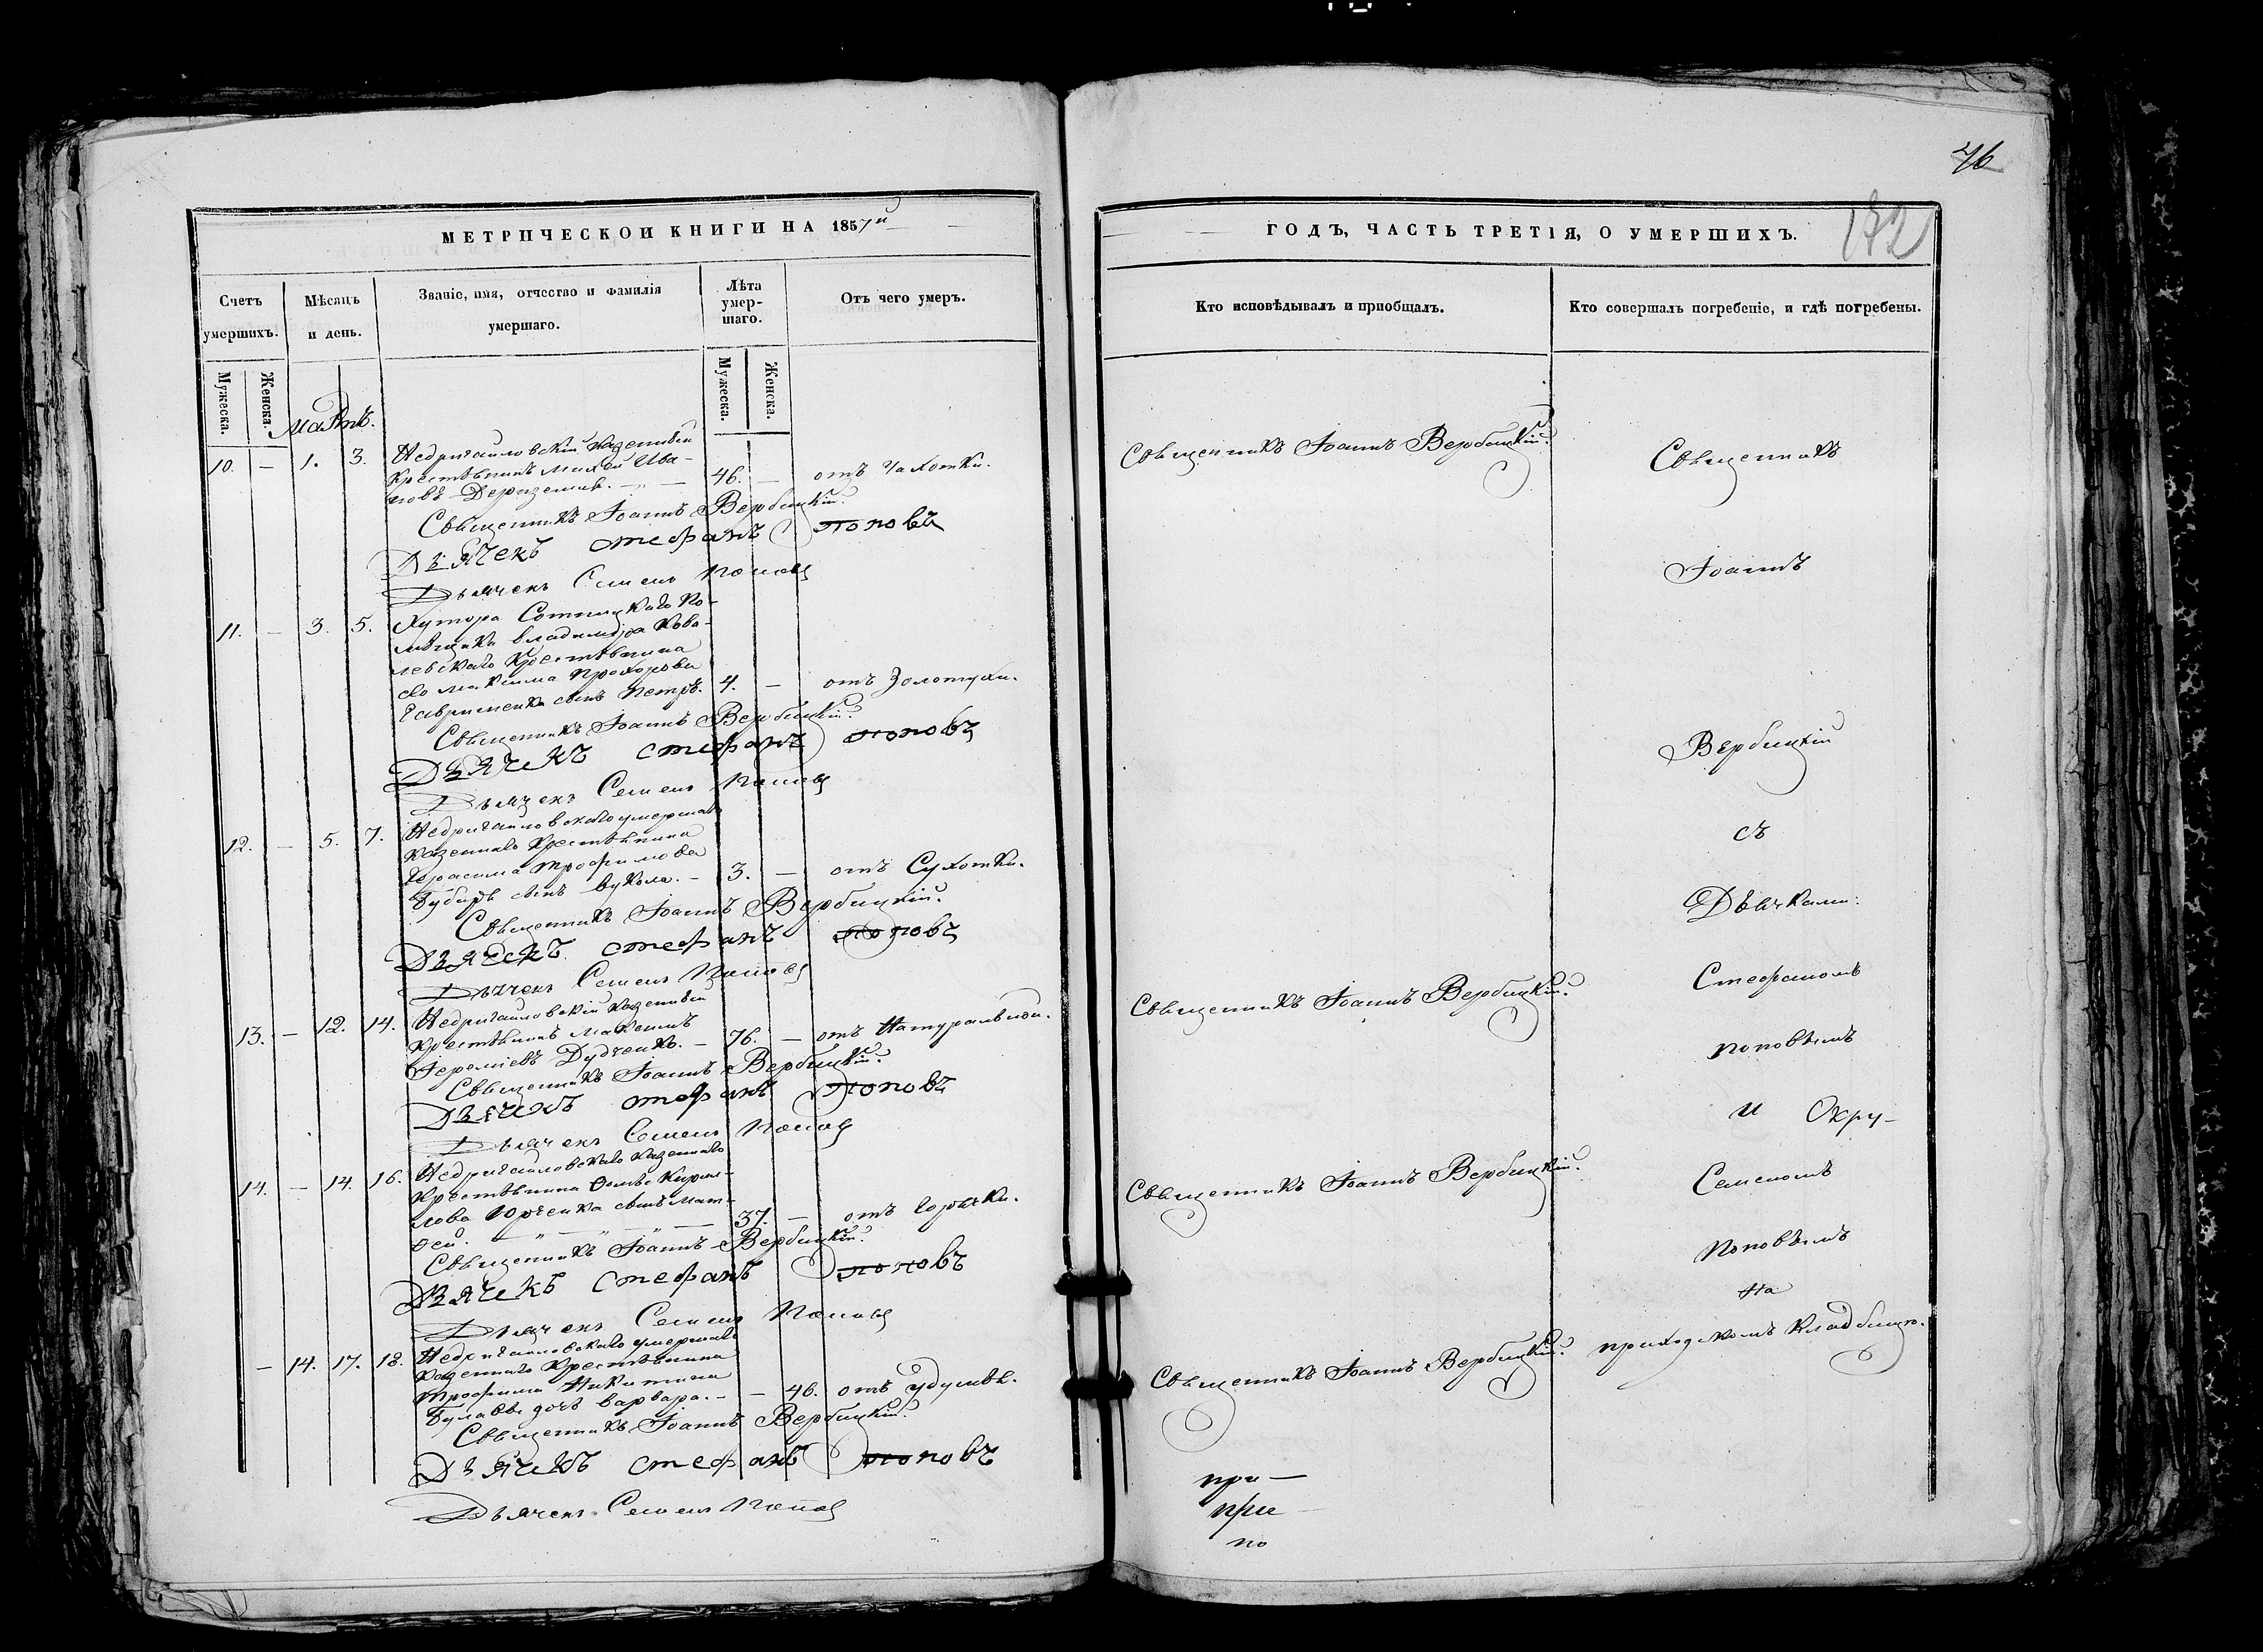 МЕТРИЧЕСКОЙ КНИГИ НА 1857й
Счетъ умершихъ.
Мѣсяцъ и день.
Званіе, имя, отчество и фамилія умершаго.
Лѣта умершаго.
Отъ чего умеръ.
Мужеска.
Женска.
Мужеска.
Женска.
Мартъ.
10. — 1. 3. Недригайловскій казенный
крестьянинъ Михей Ива-
новъ Деризенко. — 46. — отъ Чахотки.
Священникъ Іоаннъ Вербицкій.
Дьячекъ Стефанъ Поповъ
Дьячекъ Семенъ Поповъ
11. — 3. 5. Хутора Сотницкаго По-
мѣщика Владиміра Кова-
левскаго Крестьянина
Максима Прохорова
Гавриленка сынъ Петръ. 4. — отъ Золотухи.
Священникъ Іоаннъ Вербицкій.
Дьячекъ Стефанъ Поповъ
Дьячекъ Семенъ Поповъ
12. — 5. 7. Недригайловскаго умершаго
казеннаго Крестьянина
Герасима Трофимова
сынъ Вукола. — 3. — отъ Сухотки.
Священникъ Іоаннъ Вербицкій.
Дьячекъ Стефанъ Поповъ
Дьячекъ Семенъ Поповъ
13. — 12. 14. Недригайловскій казенный
Крестьянинъ Максимъ
Іереміевъ Дудченко. — 76. — отъ Натуральной.
Священникъ Іоаннъ Вербицкій.
Дьячекъ Стефанъ Поповъ
Дьячекъ Семенъ Поповъ
14. — 14. 16. Недригайловскаго казеннаго
Крестьянина Ѳомы Кирил-
лова Юрченка сынъ Мат-
ѳей. — 37. — отъ Горячки.
Священникъ Іоаннъ Вербицкій.
Дьячекъ Стефанъ Поповъ
Дьячекъ Семенъ Поповъ
— 14. 17. 18. Недригайловскаго умершаго
казеннаго Крестьянина
Трофима Никитина
дочь Варвара. — — 46. отъ Удушья.
Священникъ Іоаннъ Вербицкій.
Дьячекъ Стефанъ Поповъ
Дьячекъ Семенъ Поповъ
76
172
ГОДЪ, ЧАСТЬ ТРЕТІЯ, О УМЕРШИХЪ.
Кто исповѣдывалъ и пріобщалъ.
Кто совершалъ погребеніе, и гдѣ погребены.
Священникъ Іоаннъ Вербицкій.
Священникъ Іоаннъ Вербицкій.
Священникъ Іоаннъ Вербицкій.
Священникъ Іоаннъ Вербицкій.
Священникъ
Іоаннъ
Вербицкій
съ
Дьячками:
Стефаномъ
Поповымъ
и Окру-
Семеномъ
Поповымъ
на
приходскомъ Кладбищѣ.
при—
при
по